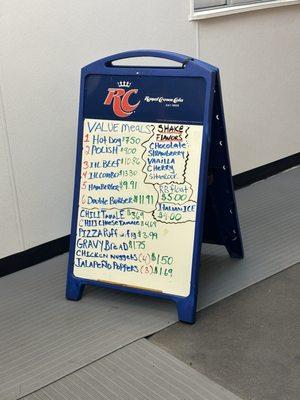 RC
Royal Crown Cola
VALUE MEALS
SHAKE FLAVORS
1 Hot Dog $7.50
Chocolate
2 POLISH
Strawberry
Vanilla
3 It. BEEF $10.86
Cherry
4 It. COMBO $13.30
Shamrock
5 HAMBURGER $9.91
RB Float
$5.00
6 Double Burger $11.91
ITALIAN ICE
$4.00
CHILI TAMALE $3.69
Chili Cheese Tamale $4.69
PIZZA Puff $3.99
GRAVY Bread $1.75
CHICKEN NUGGETS (4) $1.50
JALAPEÑO POPPERS (3) $1.69